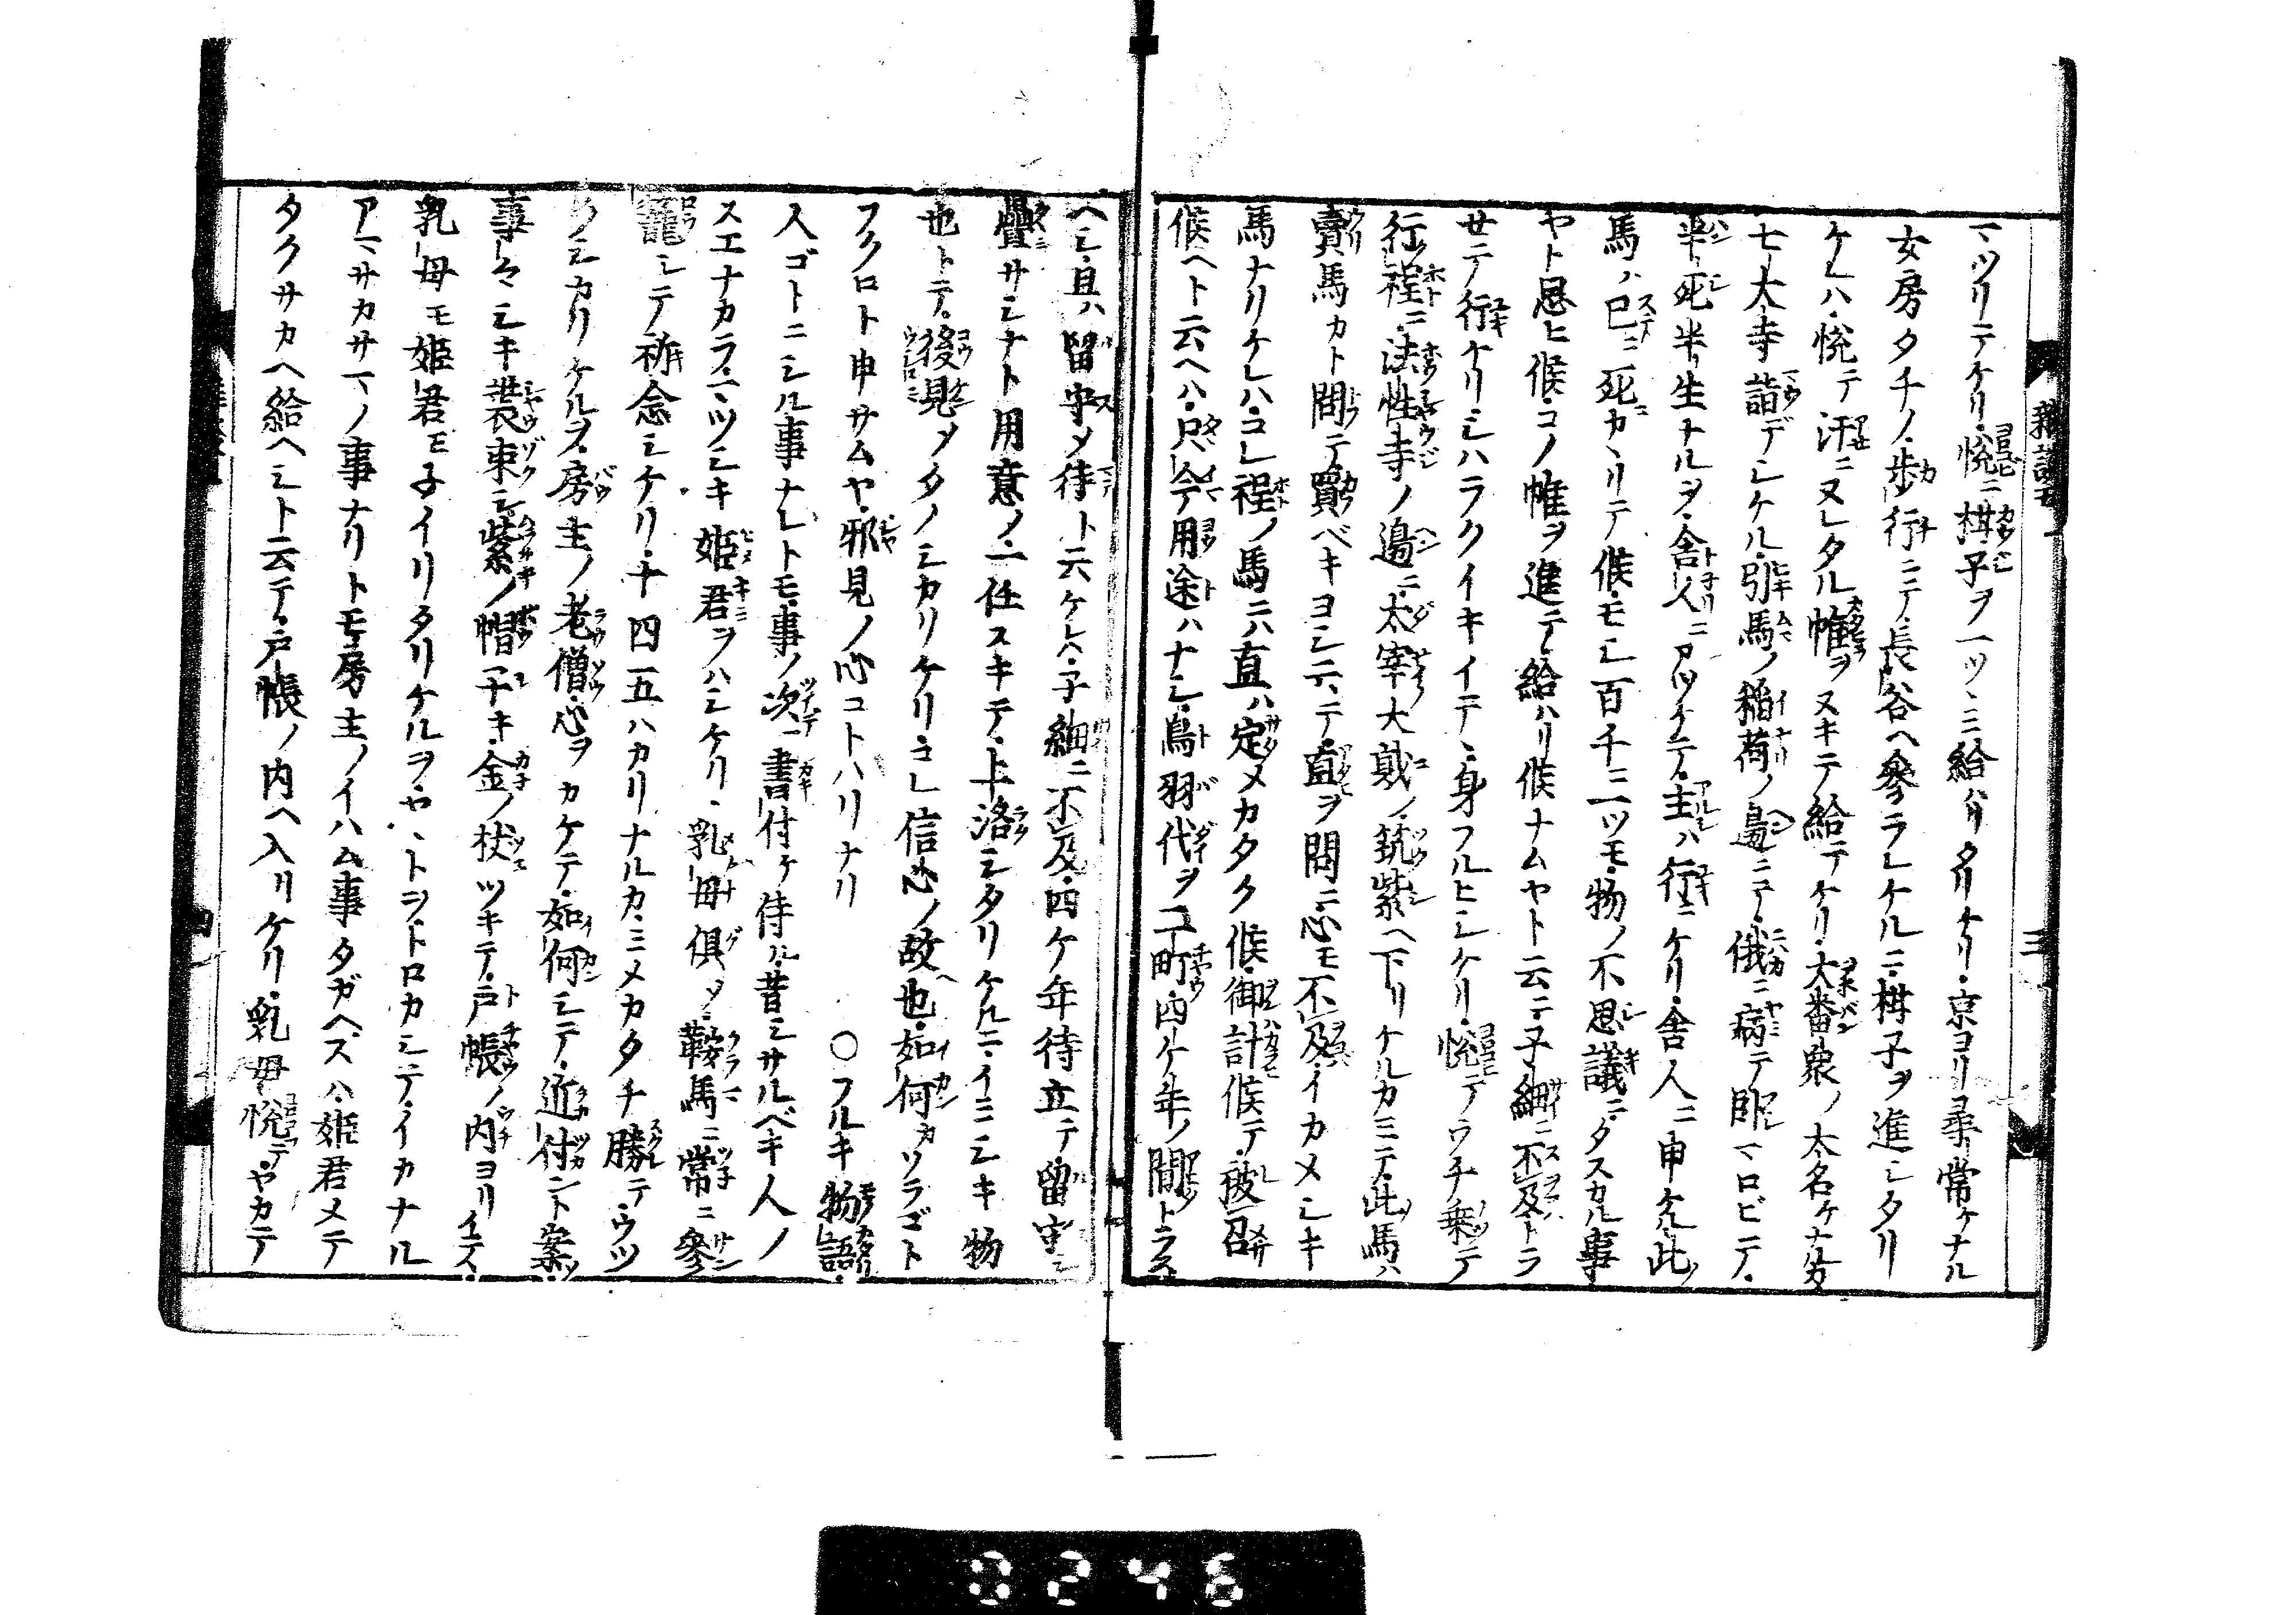 マツリテケリ・悦ニ柑子ヲ一ツヽニ給ハリタリケリ・京ヨリ尋常ケナル
女房タチノ・歩行ニテ・長谷ヘ參ラレケルニ・柑子ヲ進シタリ
ケレハ・悦テ汗ニヌレタル帷ヲヌキテ給テケリ・大番衆ノ大名ケナルカ
七大寺詣デシケル・引馬ノ稲荷ノ邊ニテ・俄ニ病テ臥マロビテ・
半死半生ナルヲ・舎人ニアツケテ・主ハ行ニケリ・舎人ニ申ケル・此ノ
馬ハ已ニ死カヽリテ候・モシ百千ニ一ツモ・物ノ不思議ニ・タスカル事
ヤト思ヒ候・コノ帷ヲ進テ・給ハリ候ナムヤト云ニ・子細ニ不及トラ
セテ行ケリ・シハラクイキイテヽ・身フルヒシケリ・悦テウチ乗テ
行程ニ・法性寺ノ邊ニ・太宰大貳ノ・筑紫ヘ下リケルカミテ・此ノ馬ハ
賣馬カト問テ買ベキヨシ云テ・直ヲ問ニ・心モ不及・イカメシキ
馬ナリケレハ・コレ程ノ馬ニハ直ハ定メカタク候・御計候テ・被召
候ヘト云ヘハ・只今用途ハナシ・鳥羽ノ代ヲ二町・四ケ年ノ間トラス
ヘシ・且ハ留守メ待ト云ケレハ・子細ニ不及・四ケ年待立テ・留守シ
疊サシナト用意ノ・二任スキテ・上洛シタリケルニ・イミシキ物
也トテ・後見メタノシカリケリ・コレ信心ノ故也・如何カソラゴト
フクロト申サムヤ・邪見ノ心コトハリナリ　〇フルキ物語・
人ゴトニシル事ナレトモ・事ノ次ニ書付ケ侍ル・昔シサルベキ人ノ
スエナカラ・マツシキ姫君ヲハシケリ・乳母倶メ・鞍馬ニ常ニ參
籠シテ祈念シケリ・十四五ハカリナルカ・ミメカタチ勝テ・ウツ
クシカリケルヲ・房主ノ老僧・心ヲカケテ・如何シテ・近付ント案シ・
事々シキ裝束シ・紫ノ帽子キ・金ノ杖ツキテ・戸帳ノ内ヨリイテヽ・
乳母モ姫君モネイリタリケルヲ・ヤヽトヲトロカシテ・イカナル
アマサカサマノ事ナリトモ・房主ノイハム事タガヘズハ・姫君メテ
タクサカヘ給ヘシト云テ・戸帳ノ内ヘ入リケリ・乳母悦テ・ヤカテ
0246